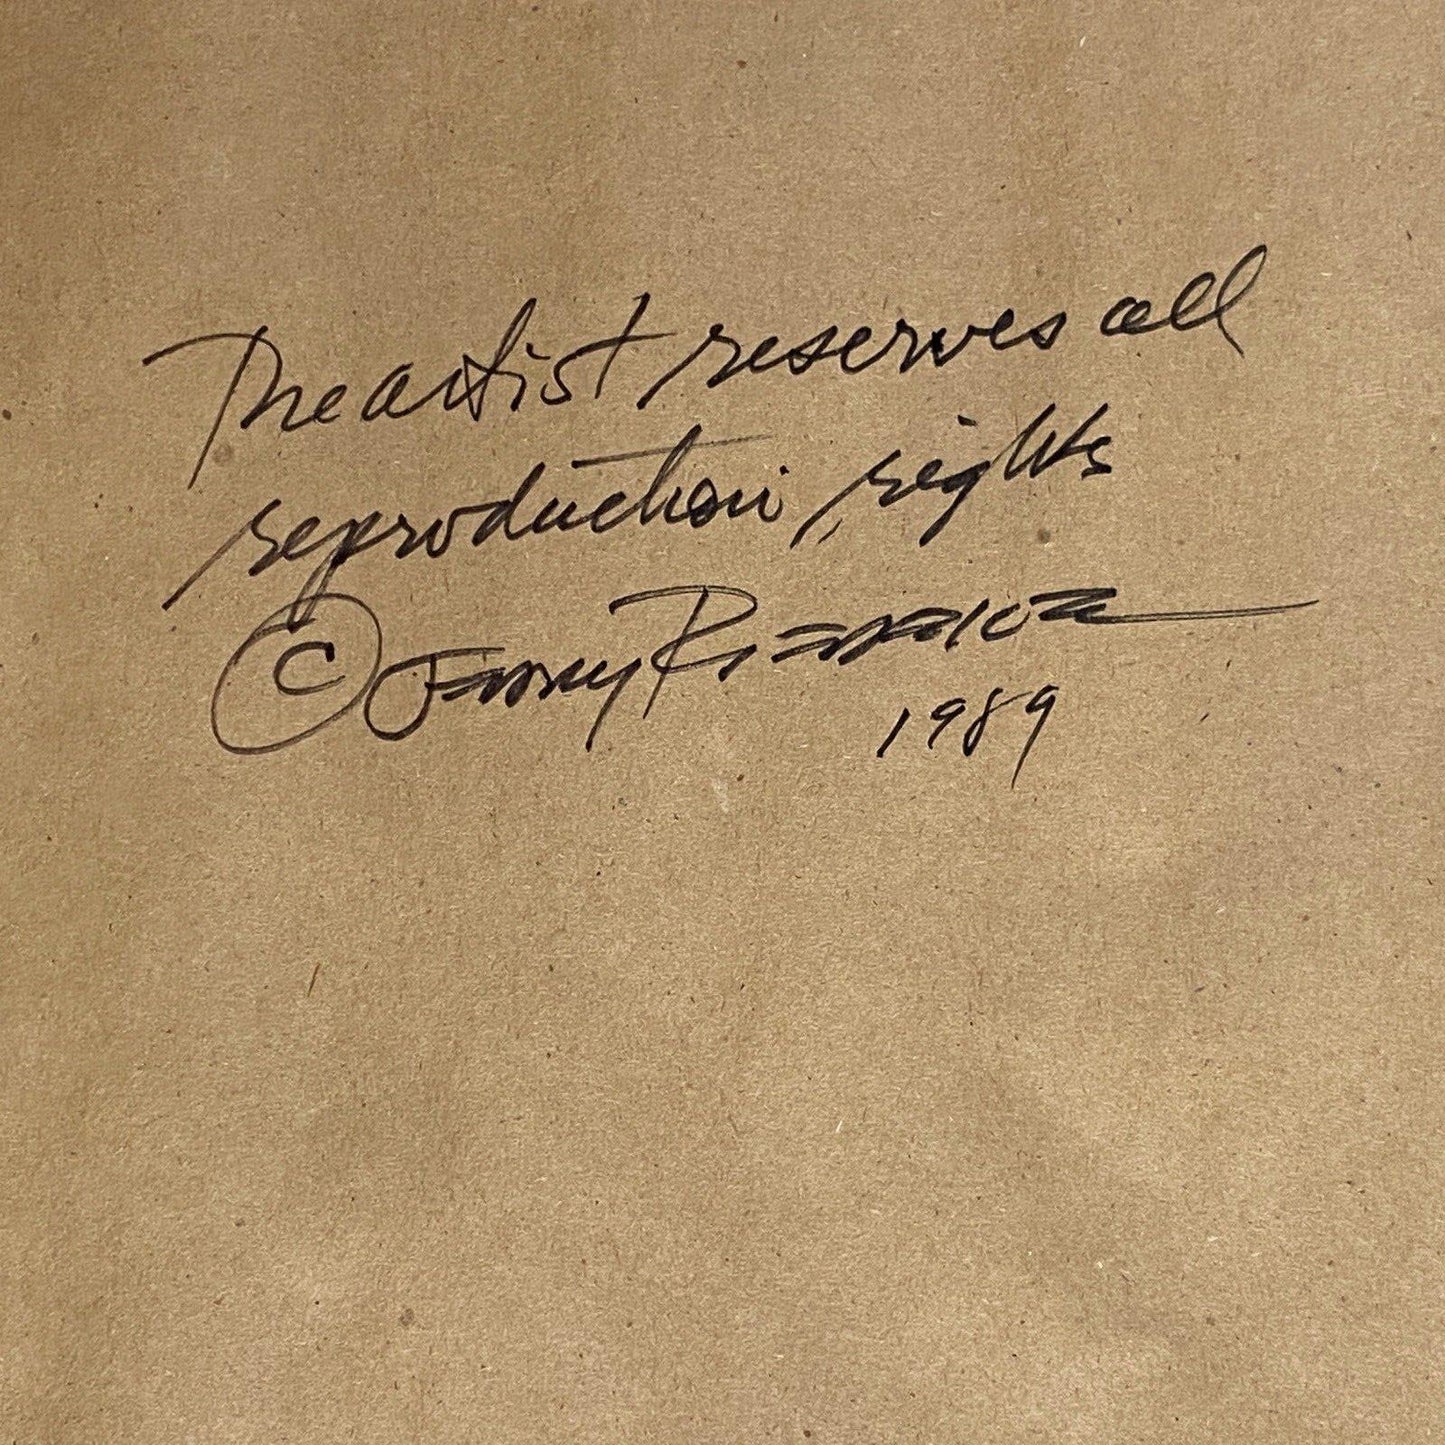 The artist reserves all
reproduction rights
© Fanny
1989